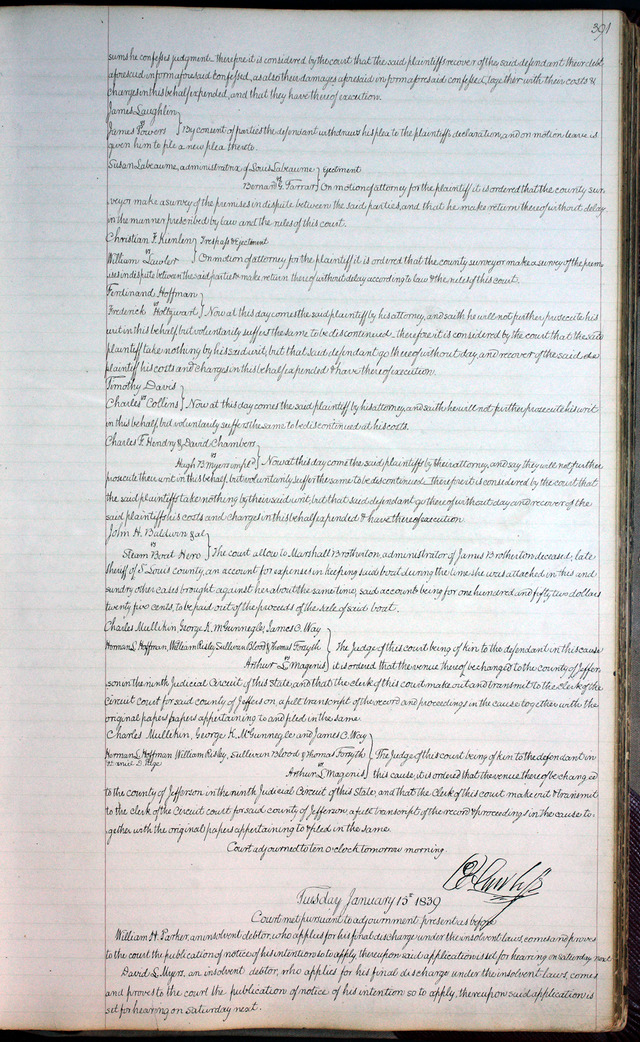 391
sums he confesses judgment. therefore it is considered by the court that the said plaintiffs recover of the said defendant their debt
aforesaid in form aforesaid confessed, as also their damages aforesaid in form aforesaid confessed, together with their costs &
charges in this behalf expended, and that they have thereof execution.
James Laughlin
vs
James Powers } By consent of parties the defendant withdraws his plea to the plaintiffs declaration, and on motion leave is
given him to file a new plea thereto.
Susan Labeaume, administratrix of Louis Labeaume } Ejectment
vs
Bernard G. Farrar } On motion of attorney for the plaintiff it is ordered that the county sur-
veyor make a survey of the premises in dispute between the said parties, and that he make return thereof without delay
in the manner prescribed by law and the rules of this court.
Christian F. Kienlen } Trespass & Ejectment
vs
William Lawler } On motion of attorney for the plaintiff it is ordered that the county surveyor make a survey of the prem-
ises in dispute between the said parties & make return thereof without delay according to law & the rules of this court.
Ferdinand Hoffman
vs
Frederick Holtzward } Now at this day comes the said plaintiff by his attorney, and saith he will not further prosecute his
writ in this behalf but voluntarily suffers the same to be discontinued. therefore it is considered by the court that the said
plaintiff take nothing by his said writ, but that said defendant go thereof without day, and recover of the said
plaintiff his costs and charges in this behalf expended & have thereof execution.
Timothy Davis
vs
Charles Collens } Now at this day comes the said plaintiff by his attorney, and saith he will not further prosecute his writ
in this behalf, but voluntarily suffers the same to be discontinued at his costs.
Charles F. Hendry & David Chambers
vs
Hugh B Myer impl.d } Now at this day come the said plaintiffs by their attorney, and say they will not further
prosecute their writ in this behalf, but voluntarily suffer the same to be discontinued. Therefore it is considered by the court that
the said plaintiffs take nothing by their said writ, but that said defendant go thereof without day and recover of the
said plaintiffs his costs and charges in this behalf expended & have thereof execution.
John H. Baldwin & al
vs
Steam Boat Hero } The court allow to Marshall Brotherton, administrator of James Brotherton deceased, late
Sheriff of St Louis county, an account for expenses in keeping said boat during the time she was attached in this and
sundry other cases brought against her about the same time, said account being for one hundred and fifty two dollars
twenty five cents, to be paid out of the proceeds of the sale of said boat.
Charles Mullikin, George K. McGunnegle, James C. Way
Herman L. Hoffman, William Risley, Sullivan Blood & Thomas Forsyth } The Judge of this court being of kin to the defendant in this cause
vs
Arthur L. Magenis } it is ordered that the venue thereof be changed to the county of Jeffer-
son in the ninth Judicial Circuit of this State, and that the clerk of this court make out and transmit to the Clerk of the
Circuit court for said county of Jefferson, a full transcript of the record and proceedings in the cause together with the
original papers papers appertaining to and filed in the same.
Charles Mullekin, George K. McGunnegle and James C. Way
Herman L. Hoffman William Risley, Sullivan Blood & Thomas Forsyth } The Judge of this court being of kin to the defendant in
vs
Arthur L. Magenis } this cause, it is ordered that the venue thereof be changed
to the county of Jefferson in the ninth Judicial Circuit of this State, and that the Clerk of this court make out & transmit
to the clerk of the Circuit court for said county of Jefferson, a full transcript of the record & proceedings in the cause to-
gether with the original papers appertaining to & filed in the same.
Court adjourned to ten o'clock tomorrow morning.
Tuesday January 15th 1839
Court met pursuant to adjournment present as before
William H. Parker, an insolvent debtor, who applies for his final discharge under the insolvent laws, comes and proves
to the court the publication of notice of his intention so to apply thereupon said application is set for hearing on saturday next
David L. Myers, an insolvent debtor, who applies for his final discharge under the insolvent laws, comes
and proves to the court the publication of notice of his intention so to apply, thereupon said application is
set for hearing on Saturday next.